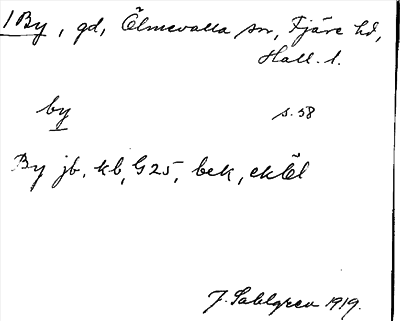 1 By, gd, Ölmevalla sn, Fjäre hd,
Hall. l.
by s. 58
By jb, kb, G25, bek, ekÖl
J. Sahlgren 1919.